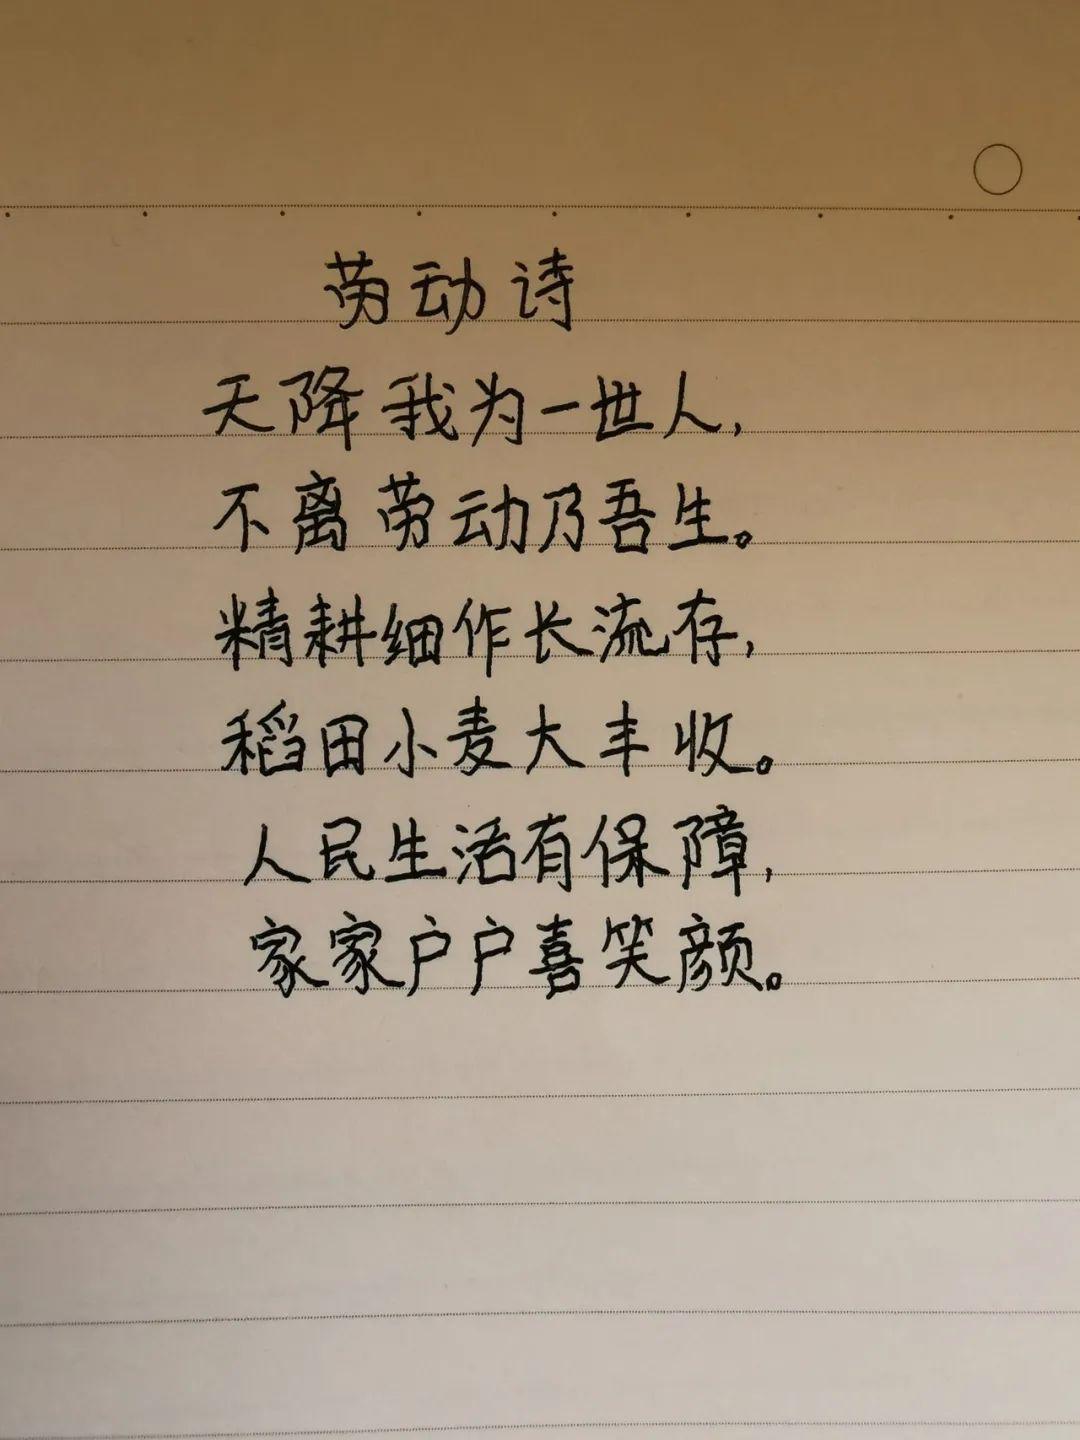 劳动诗
天降我为一世人,
不离劳动乃吾生。
精耕细作长流存,
稻田小麦大丰收。
人民生活有保障,
家家户户喜笑颜。